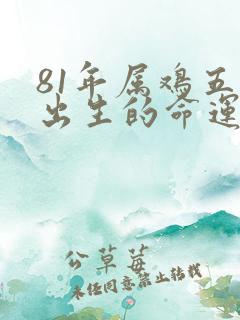 81年属鸡五
出生的命运
公草莓
未经同意禁止转载